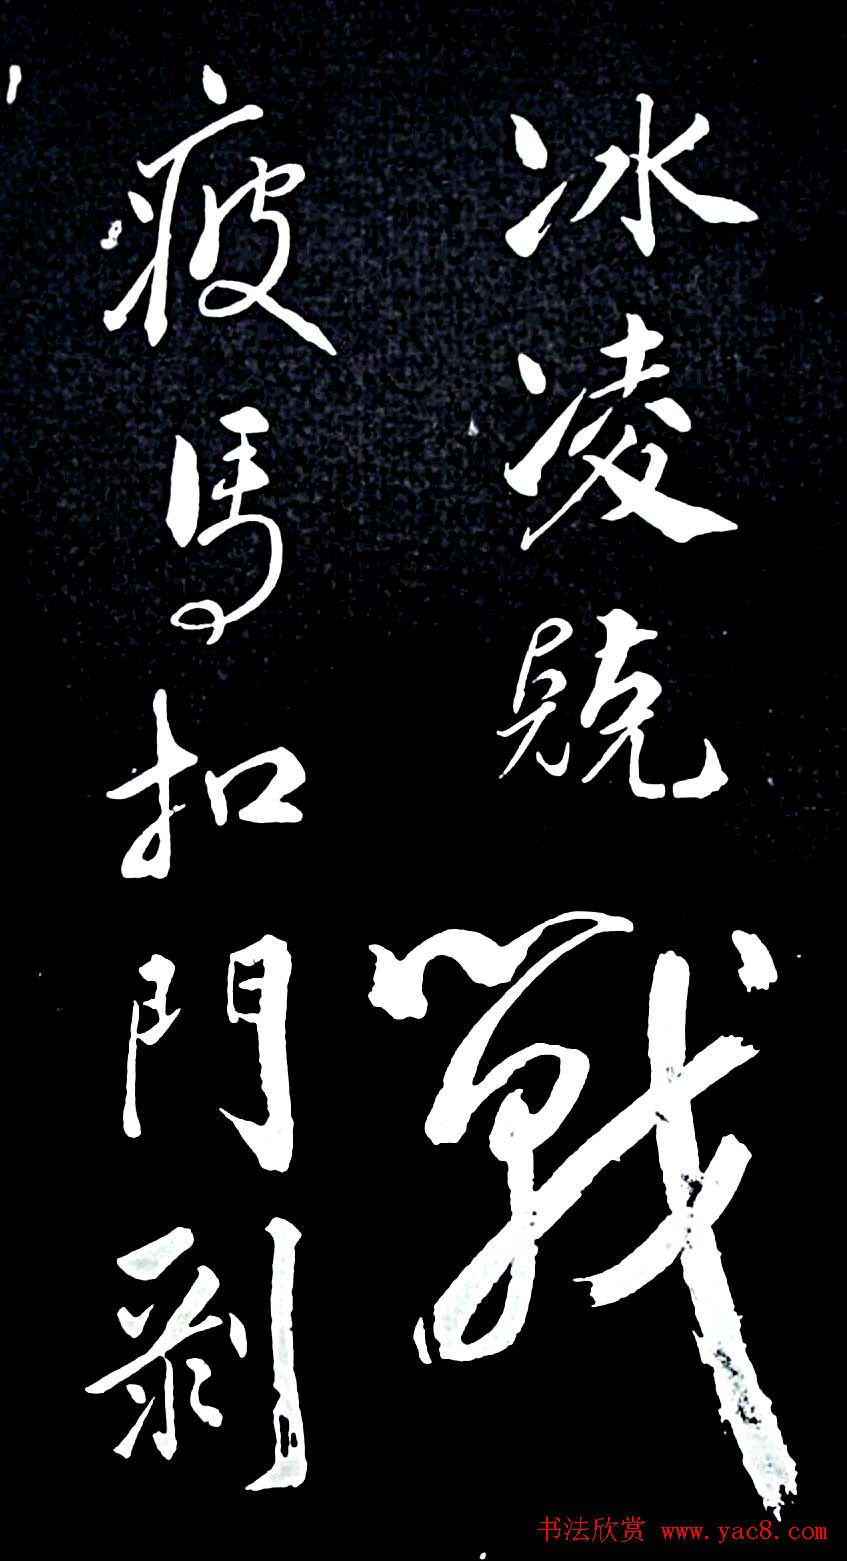 冰凌兢戰
疲馬扣門剥
书法欣赏 www.yac8.com